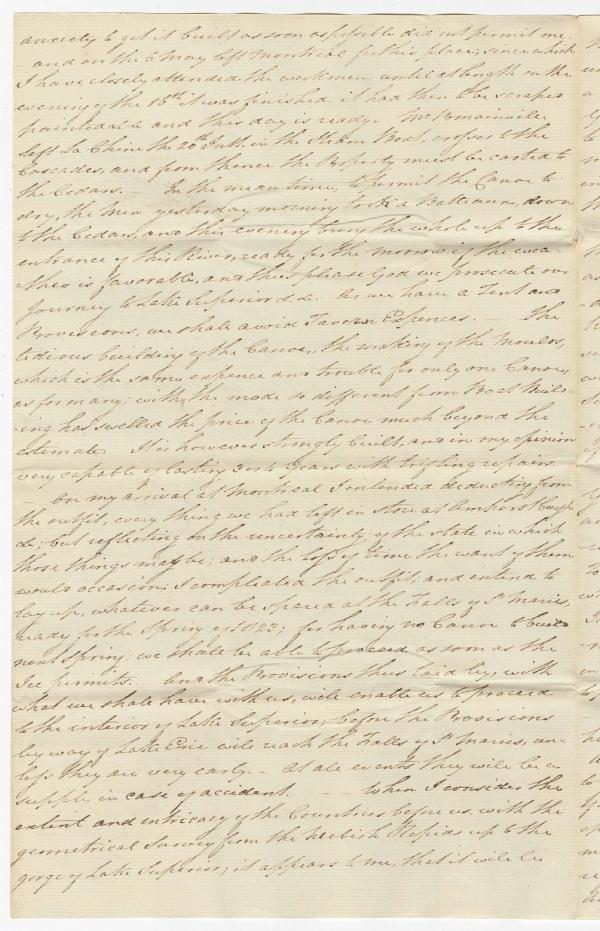 anxiety to get it built as soon as possible did not permit me
and on the 6 May left Montreal for this place; since which
I have closely attended the workmen, until at length on the
evening of the 16th it was finished. it had then to be scraped
painted &c and this day is ready. Mr
left La Chine the 20th Inst. in the Steam Boat, crosses to the
Cascades, and from thence the Property must be carted to
the Cedars. — In the mean time, to permit the Canoe to
dry, the Men yesterday morning took a Batteaux, down
to the Cedars, and this evening bring the whole up to the
entrance of this River, ready for the morrow if the wea-
ther is favorable, and thus please God we prosecute our
Journey to Lake Superior &c. As we have a Tent and
Provisions, we shall avoid Tavern Expences. — The
tedious building of the Canoe, the making of the Moulds,
which is the same expence and trouble for only one Canoe,
as for many; with the mode so different from Boat Build-
-ing has swelled the price of the Canoe much beyond the
estimate. It is however strongly built, and in my opinion
very capable of lasting 3 or 4 years with trifling repairs.
On my arrival at Montreal I intended deducting from
the outfit, every thing we had left in store at Amherstburgh
&c; but reflecting on the uncertainty of the state in which
those things may be; and the loss of time the want of them
would occasion; I compleated the outfit; and intend to
lay up, whatever can be spared at the Falls of St Maries,
ready for the Spring of 1823; for having no Canoe to build
next Spring; we shall be able to proceed as soon as the
Ice permits. And the Provisions thus laid by, with
what we shall have with us, will enable us to proceed
to the interior of Lake Superior, before the Provisions
by way of Lake Erie will reach the Falls of St Maries, un-
less they are very early. — At all events they will be a
supply in case of accident. — — When I consider the
extent and intricacy of the Countries before us, with the
geometrical Survey from the Nebish Rapids up to the
gorge of Lake Superior; it appears to me, that it will be